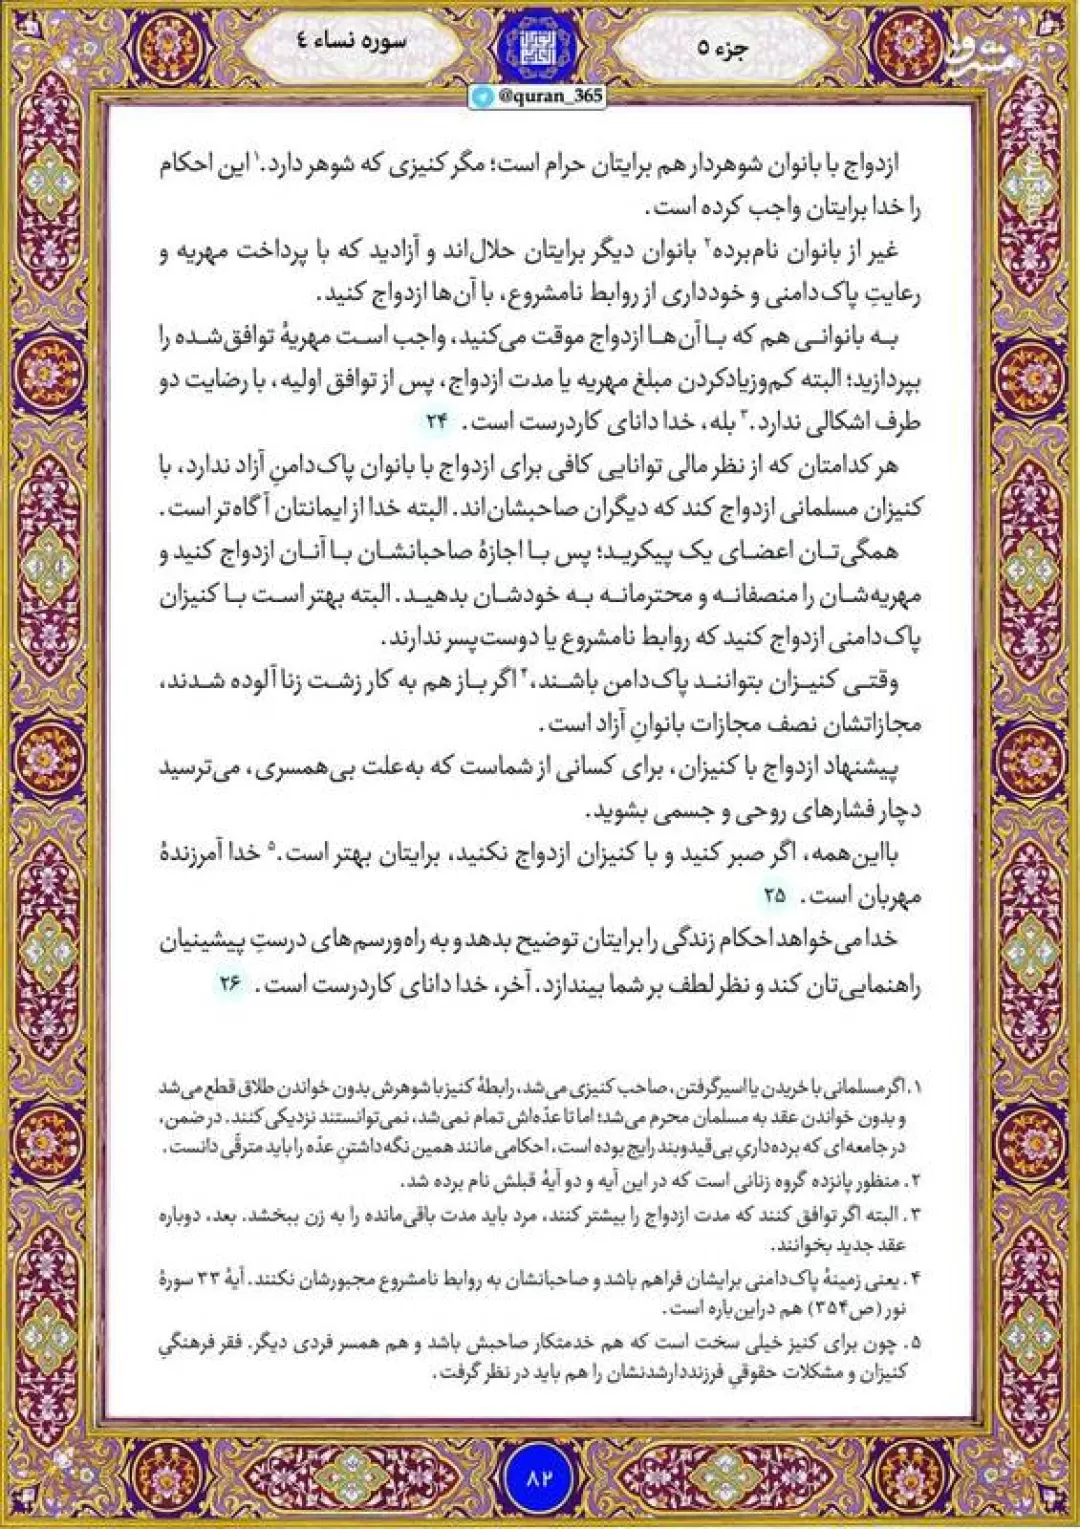 جزء ۵
سوره نساء ٤
@quran_365
مشرق
ازدواج با بانوان شوهردار هم برایتان حرام است؛ مگر کنیزی که شوهر دارد.۱ این احکام
را خدا برایتان واجب کرده است.
غیر از بانوان نام‌برده۲ بانوان دیگر برایتان حلال‌اند و آزادید که با پرداخت مهریه و
رعایتِ پاک‌دامنی و خودداری از روابط نامشروع، با آن‌ها ازدواج کنید.
به بانوانی هم که با آن‌ها ازدواج موقت می‌کنید، واجب است مهریهٔ توافق‌شده را
بپردازید؛ البته کم‌وزیادکردن مبلغ مهریه یا مدت ازدواج، پس از توافق اولیه، با رضایت دو
طرف اشکالی ندارد.۳ بله، خدا دانای کاردرست است. ۲۴
هر کدامتان که از نظر مالی توانایی کافی برای ازدواج با بانوان پاک‌دامنِ آزاد ندارد، با
کنیزان مسلمانی ازدواج کند که دیگران صاحبشان‌اند. البته خدا از ایمانتان آگاه‌تر است.
همگی‌تان اعضای یک پیکرید؛ پس با اجازهٔ صاحبانشان با آنان ازدواج کنید و
مهریه‌شان را منصفانه و محترمانه به خودشان بدهید. البته بهتر است با کنیزان
پاک‌دامنی ازدواج کنید که روابط نامشروع یا دوست‌پسر ندارند.
وقتی کنیزان بتوانند پاک‌دامن باشند،۴ اگر باز هم به کار زشت زنا آلوده شدند،
مجازاتشان نصف مجازات بانوانِ آزاد است.
پیشنهاد ازدواج با کنیزان، برای کسانی از شماست که به‌علت بی‌همسری، می‌ترسید
دچار فشارهای روحی و جسمی بشوید.
بااین‌همه، اگر صبر کنید و با کنیزان ازدواج نکنید، برایتان بهتر است.۵ خدا آمرزندهٔ
مهربان است. ۲۵
خدا می‌خواهد احکام زندگی را برایتان توضیح بدهد و به راه‌ورسم‌های درستِ پیشینیان
راهنمایی‌تان کند و نظر لطف بر شما بیندازد. آخر، خدا دانای کاردرست است. ۲۶
۱. اگر مسلمانی با خریدن یا اسیرگرفتن، صاحب کنیزی می‌شد، رابطهٔ کنیز با شوهرش بدون خواندن طلاق قطع می‌شد
و بدون خواندن عقد به مسلمان محرم می‌شد؛ اما تا عدّه‌اش تمام نمی‌شد، نمی‌توانستند نزدیکی کنند. در ضمن،
در جامعه‌ای که برده‌داریِ بی‌قیدوبند رایج بوده است، احکامی مانند همین نگه‌داشتنِ عدّه را باید مترقّی دانست.
۲. منظور پانزده گروه زنانی است که در این آیه و دو آیهٔ قبلش نام برده شد.
۳. البته اگر توافق کنند که مدت ازدواج را بیشتر کنند، مرد باید مدت باقی‌مانده را به زن ببخشد. بعد، دوباره
عقد جدید بخوانند.
۴. یعنی زمینهٔ پاک‌دامنی برایشان فراهم باشد و صاحبانشان به روابط نامشروع مجبورشان نکنند. آیهٔ ۳۳ سورهٔ
نور (ص۳۵۴) هم دراین‌باره است.
۵. چون برای کنیز خیلی سخت است که هم خدمتکار صاحبش باشد و هم همسر فردی دیگر. فقر فرهنگیِ
کنیزان و مشکلات حقوقیِ فرزنددارشدنشان را هم باید در نظر گرفت.
۸۲